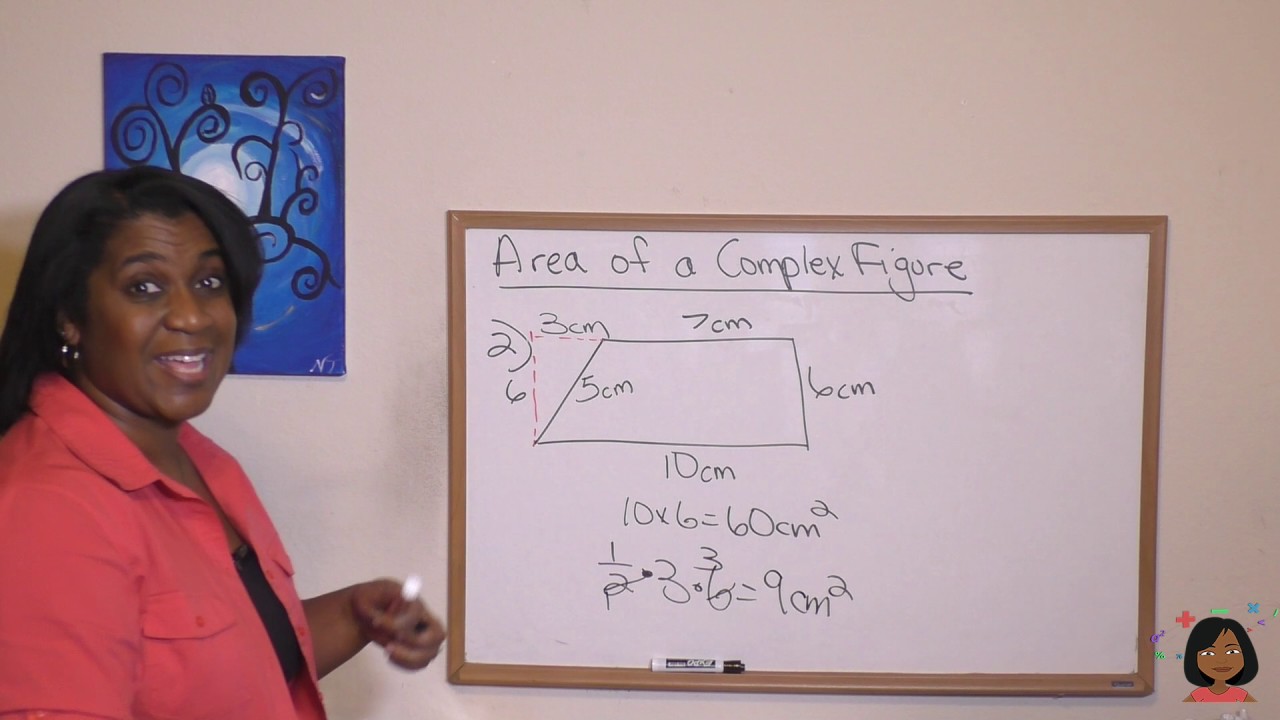 Area of a Complex Figure
2) 3cm 7cm
6 5cm 6cm
10cm
10x6=60cm²
1/2·3·6=9cm²
3
EXPO